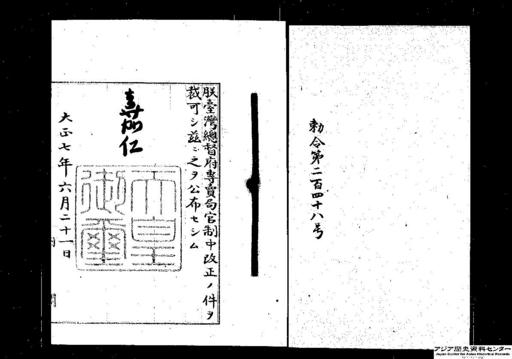 勅令第二百四十八号
朕臺灣總督府專賣局官制中改正ノ件ヲ
裁可シ茲ニ之ヲ公布セシム
嘉仁
天皇
御璽
大正七年六月二十一日
内閣
アジア歴史資料センター
Japan Center for Asian Historical Records